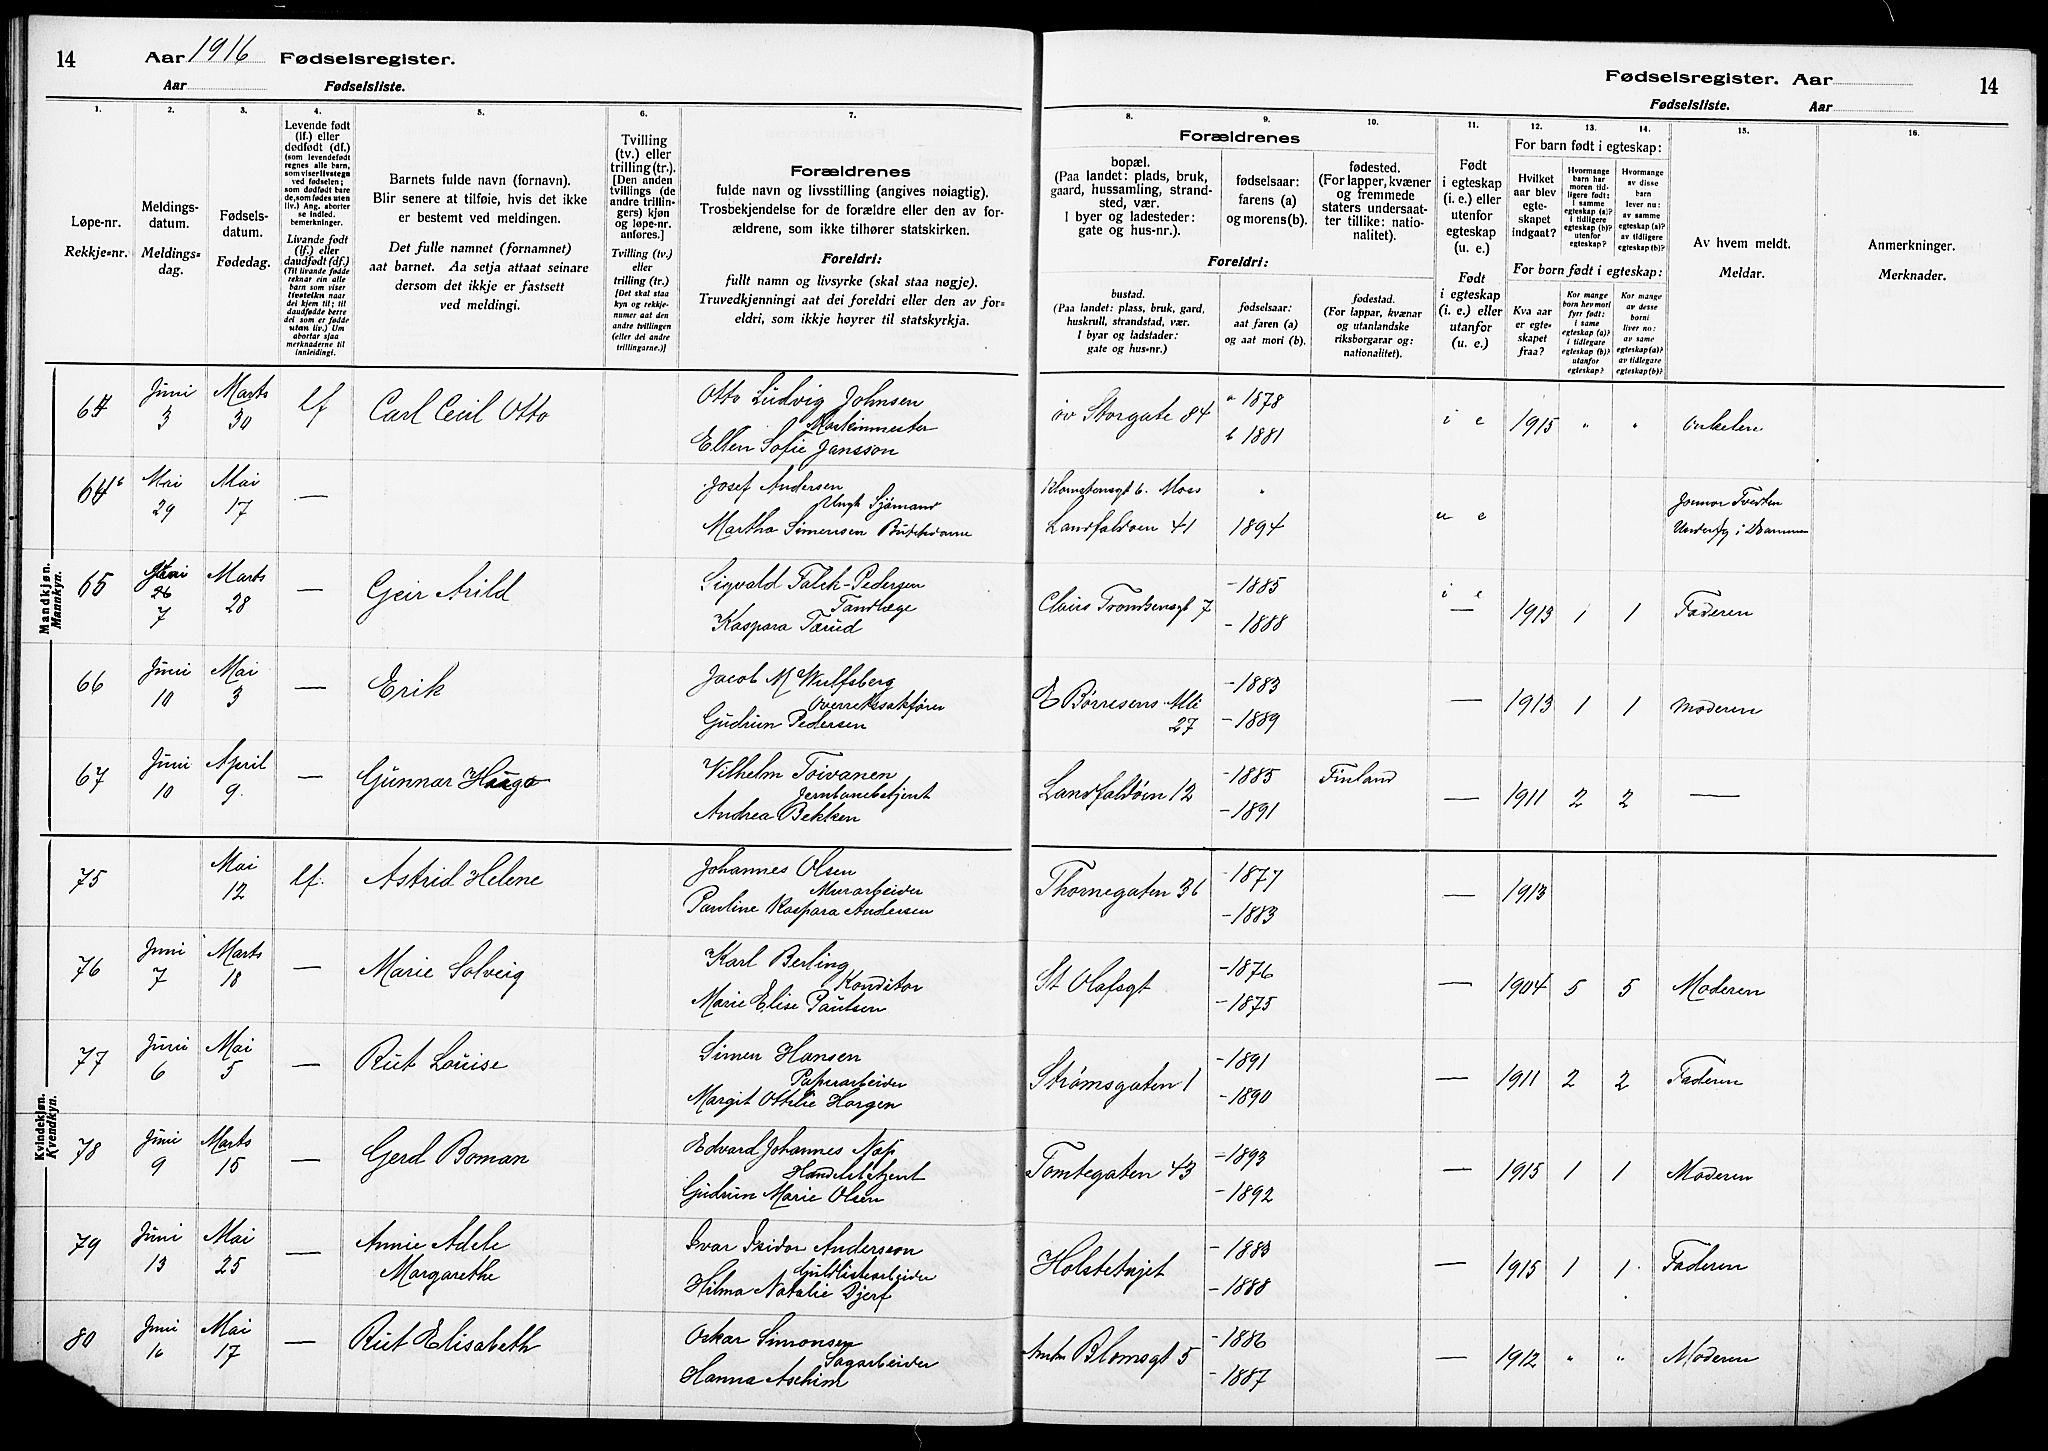 14
Aar 1916 Fødselsregister.
Aar Fødselsliste.
Fødselsregister. Aar
14
Fødselsliste. Aar
1.
2.
3.
4.
5.
6.
7.
8.
9.
10.
11.
12.
13.
14.
15.
16.
Løpe-nr.
Rekkje-nr.
Meldings-
datum.
Meldings-
dag.
Fødsels-
datum.
Fødedag.
Levende født
(lf.) eller
dødfødt (df.)
(som levendefødt
regnes alle barn,
som viser livstegn
ved fødselen;
som dødfødt bare
de, som fødes uten
liv.) Ang. aborter
se indled.
bemerkninger.
Livande født
(lf.) eller
daudfødt (df.)
(Til livande fødde
reknar ein alle
barn som viser
livsteikn naar
dei kjem til; til
daudfødde berre
dei som er fødde
utan liv.) Um
abortar sjaa
merknaderne til
innleidingi.
Barnets fulde navn (fornavn).
Blir senere at tilføie, hvis det ikke
er bestemt ved meldingen.
Det fulle namnet (fornamnet)
aat barnet. Aa setja attaat seinare
dersom det ikkje er fastsett
ved meldingi.
Tvilling
(tv.) eller
trilling (tr.).
[Den anden
tvillings (de
andre trillin-
gers) kjøn
og løpe-nr.
anføres.]
Tvilling (tv.)
eller
trilling (tr.)
[Det skal staa
kyn og rekkje-
numer aat den
andre tvillingen
(eller dei andre
trillingarne.)]
Forældrenes
fulde navn og livsstilling (angives nøiagtig).
Trosbekjendelse for de forældre eller den av for-
ældrene, som ikke tilhører statskirken.
Foreldri:
fullt namn og livsyrke (skal staa nøgje).
Truvedkjenningi aat dei foreldri eller den av for-
eldri, som ikkje høyrer til statskyrkja.
Forældrenes
bopæl.
(Paa landet: plads, bruk,
gaard, hussamling, strand-
sted, vær.
I byer og ladesteder:
gate og hus-nr.).
fødselsaar:
farens (a)
og morens (b).
fødested.
(For lapper, kvæner
og fremmede
staters undersaat-
ter tillike: natio-
nalitet).
Foreldri:
bustad.
(Paa landet: plass, bruk, gard,
huskrull, strandstad, vær.
I byar og ladstader:
gate og hus-nr.)
fødselsaar:
aat faren (a)
og aat mori (b).
fødestad.
(For lappar, kvænar
og utanlandske
riksborgarar og:
nationalitet).
Født
i egteskap
(i. e.) eller
utenfor
egteskap
(u. e.)
Født
i egteskap
(i. e.) eller
utanfor
(u. e.).
For barn født i egteskap:
Hvilket
aar blev
egte-
skapet
indgaat?
Hvormange
barn har
moren tid-
ligere født:
i samme
egteskap (a)?
i tidligere
egteskap (b)?
utenfor
egteskap?
Hvormange
av disse
barn
lever nu:
av samme
egteskap (a)?
av tidligere
egteskap (b)?
For born født i egteskap:
Kva aar
er egte-
skapet
fraa?
Kor mange
born hev mori
fyrr født:
i same
egteskap (a)?
i tidlegare
egteskap (b)?
utanfor
egteskap?
Kor mange
av desse
borni
liver no:
av same
egteskap (a)?
av tidlegare
egteskap (b)?
Av hvem meldt.
Meldar.
Anmerkninger.
Merknader.
Mandkjøn.
Mannkyn.
64 Juni 3 Marts 30 lf Carl Cecil Otto
Otto Ludvig Johnsen
Maskinmester
Ellen Sofie Jansson
øv Storgate 84 a 1878
b 1881
i e 1915 " " Onkelen
64b Mai 29 Mai 17 —
Josef Andersen
Ungk Sjømand
Martha Simensen Butikdame
Blomstensgt 6. Moss "
Landfaldøen 41 1894
u e
65 Juni 7 Marts 28 — Geir Arild
Sigvald Falch-Pedersen
Tandlæge
Kaspara Tarud
Claus Trondsensgt 7 -1885
-1888
i e — 1913 1 1 Faderen
66 Juni 10 Mai 3 — Erik
Jacob M Wulfsberg
Overretssakfører
Gudrun Pedersen
E Børresens Alle
27
-1883
-1889
— 1913 1 1 Moderen
67 Juni 10 April 9. — Gunnar Hugo
Vilhelm Toivanen
Jernbanebetjent
Andrea Bekken
Landfaldøen 12 -1885 Finland
-1891
— 1911 2 2 —
Kvindekjøn.
Kvendkyn.
75 Mai 12 lf. Astrid Helene
Johannes Olsen
Murarbeider
Pauline Kaspara Andersen
Thornegaten 36 -1877
-1883
— 1913
76 Juni 7 Marts 18 — Marie Solveig
Karl Berling
Konditor
Marie Elise Paulsen
St Olafsgt -1876
-1875
— 1904 5 5 Moderen
77 Juni 6 Mai 5 — Rut Louise
Simen Hansen
Papirarbeider
Margit Ottilie Horgen
Strømsgaten 1 -1891
-1890
— 1911 2 2 Faderen
78 Juni 9 Marts 15 — Gerd Boman
Edvard Johannes Næp
Handelsbetjent
Gudrun Marie Olsen
Tomtegaten 43 -1893
-1892
— 1915 1 1 Moderen
79 Juni 13 Mai 25 — Annie Adele
Margarethe
Ivar Isidor Andersson
Guldlistearbeider
Hilma Natalie Djerf
-1883
-1888
— 1915 1 1 Faderen
80 Juni 16 Mai 17 — Rut Elisabeth
Oskar Simonsen
Sagarbeider
Hanna Aschim
Blomsgt 5 -1886
-1887
— 1912 " " Moderen